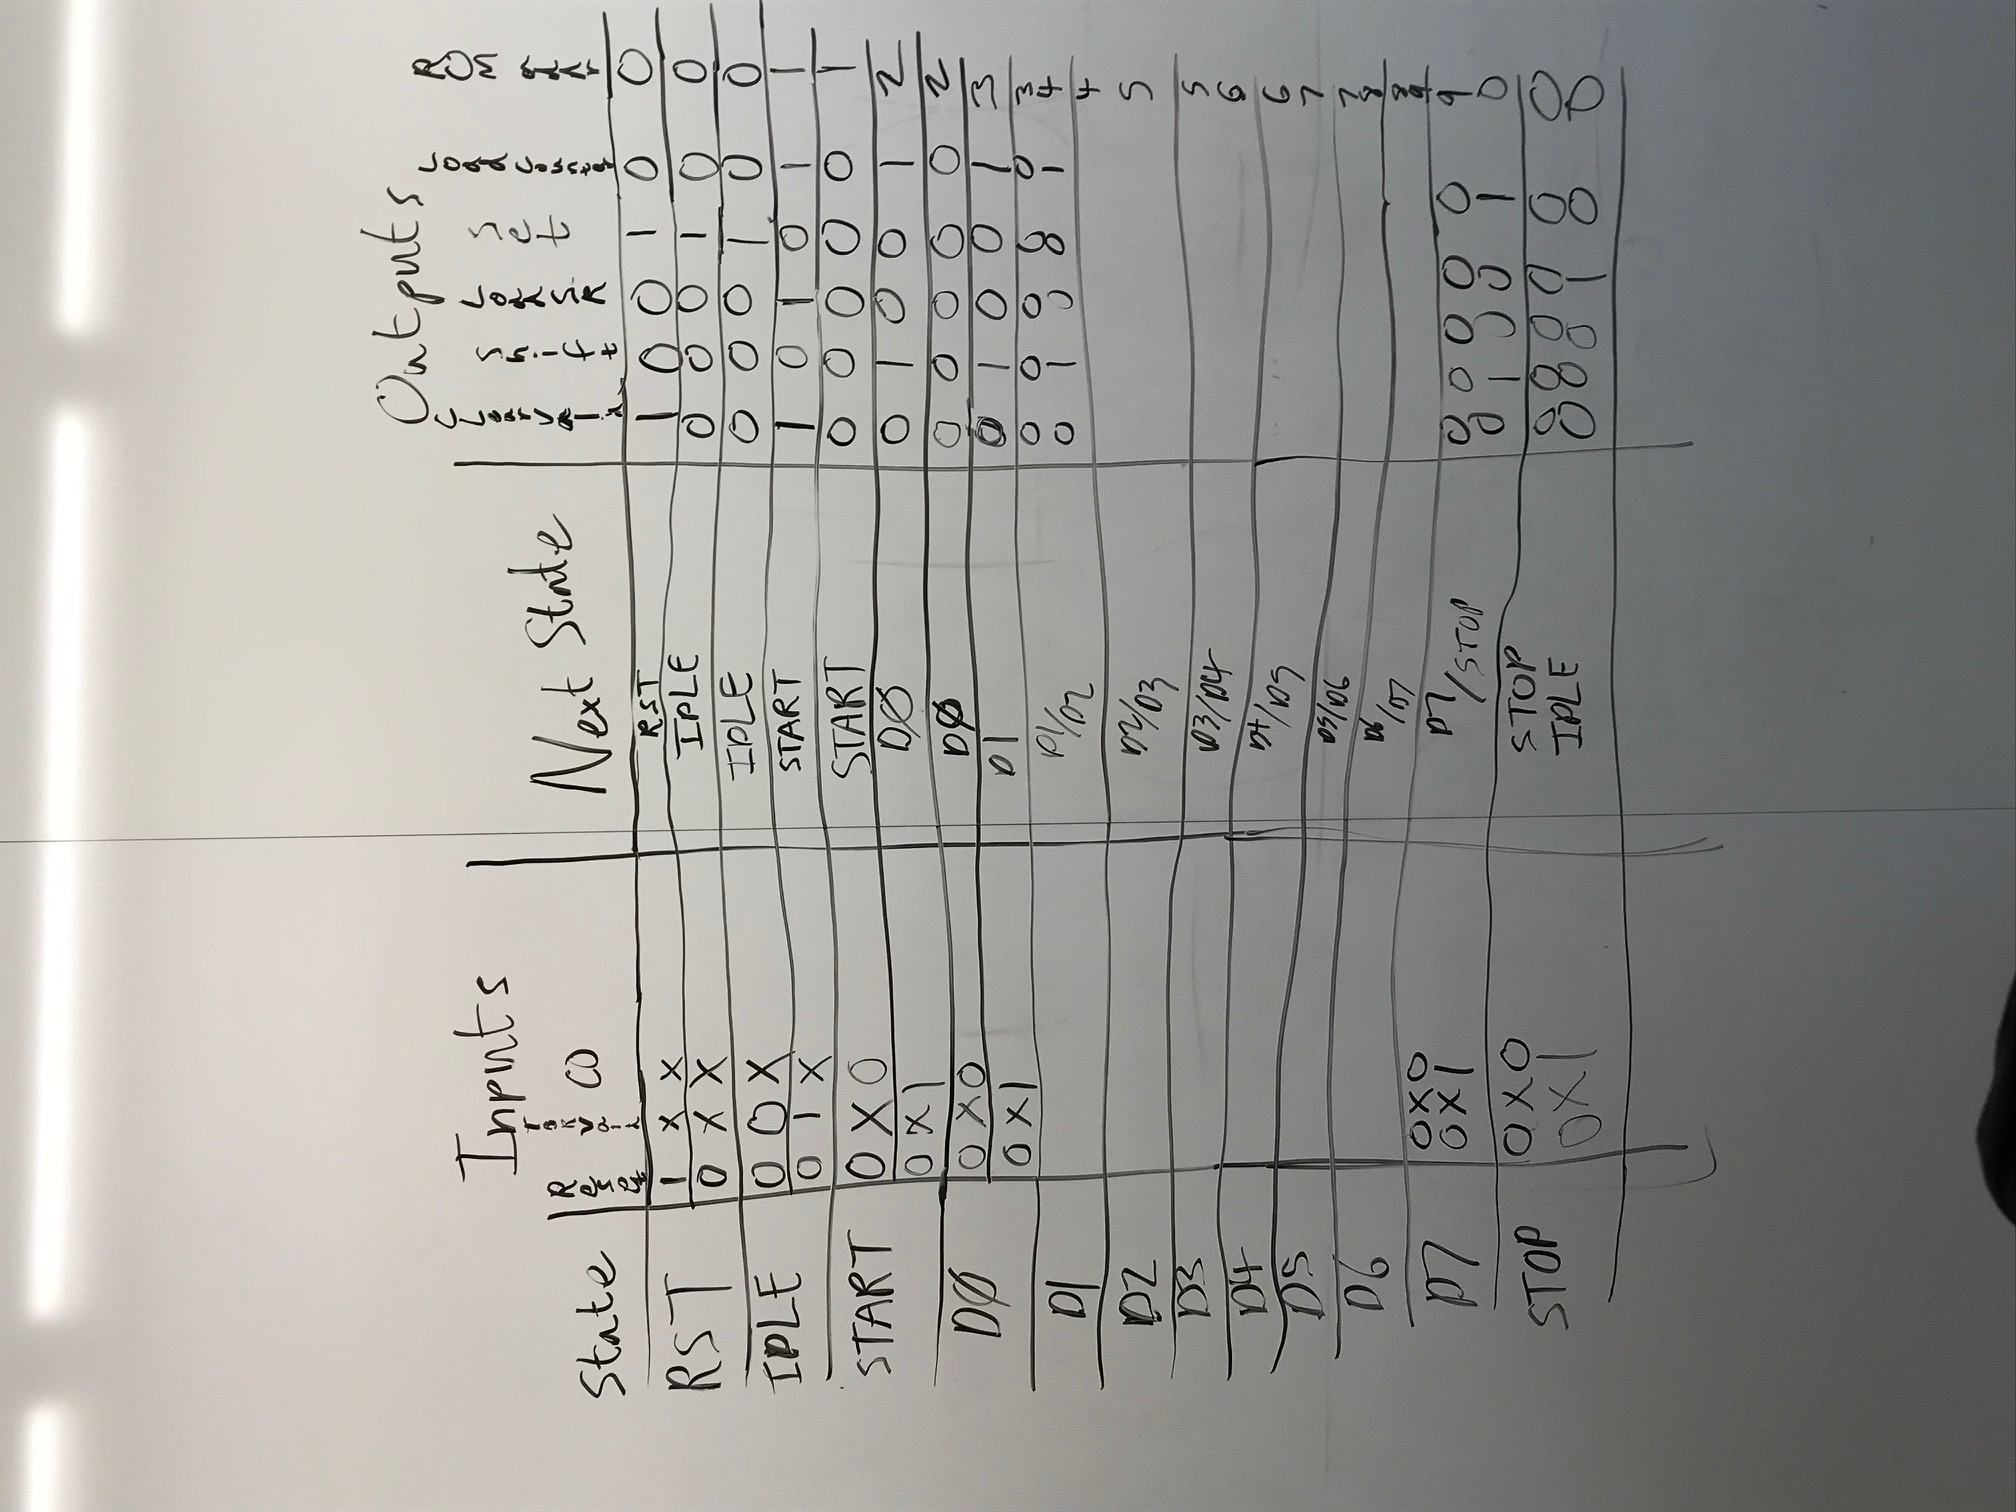 Outputs
Inputs
State Reset TBRvalid CO Next State Clearvalid Shift LoadSR Set Loadcounter ROM addr
RST 1 X X RST 1 0 0 1 0 0
0 X X IDLE 0 0 0 1 0 0
IDLE 0 0 X IDLE 0 0 0 1 0 0
0 1 X START 1 0 1 0 1 1
START 0 X 0 START 0 0 0 0 0 1
0 X 1 DØ 0 1 0 0 1 2
DØ 0 X 0 DØ 0 0 0 0 0 2
0 X 1 D1 0 1 0 0 1 3
D1 D1/D2 0 0 0 0 0 3
0 1 0 0 1 4
4
D2 D2/D3 5
D3 D3/D4 5
6
D4 D4/D5 6
7
D5 D5/D6 7
8
D6 D6/D7 8
9
D7 0 X 0 D7/STOP 0 0 0 0 0 9
0 X 1 0 1 0 0 1 0
STOP 0 X 0 STOP 0 0 0 0 0 0
0 X 1 IDLE 0 0 0 1 0 0